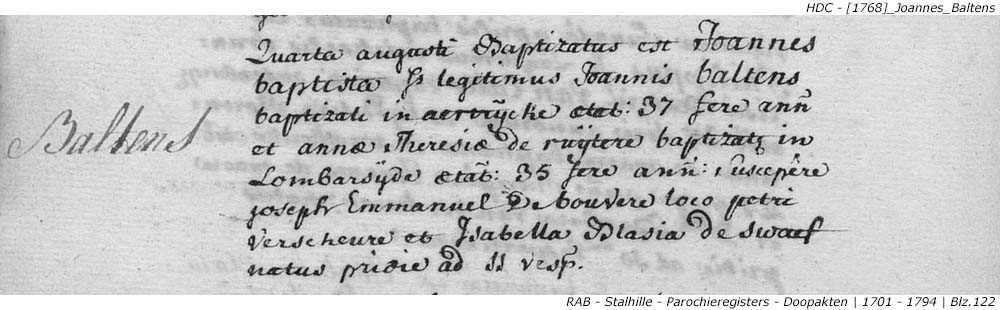 HDC - [1768]_Joannes_Baltens
Quarta augusti Baptizatus est Joannes
baptista fs legitimus Joannis baltens
baptizati in aertrÿcke etat: 37 fere anñ
Baltens
et annæ Theresiæ de ruÿtere baptizatæ in
Lombarsÿde ætat: 35 fere anñ: susceperê
joseph Emmanuel De bouvere loco petri
verscheure et Isabella Blasia de swaef
natus pridie ad 11 vesp.
RAB - Stalhille - Parochieregisters - Doopakten | 1701 - 1794 | Blz.122